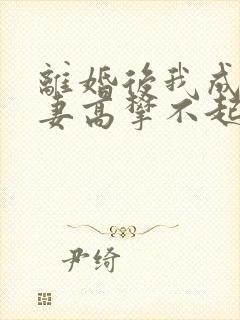 離婚後我成
妻高攀不起
尹绮